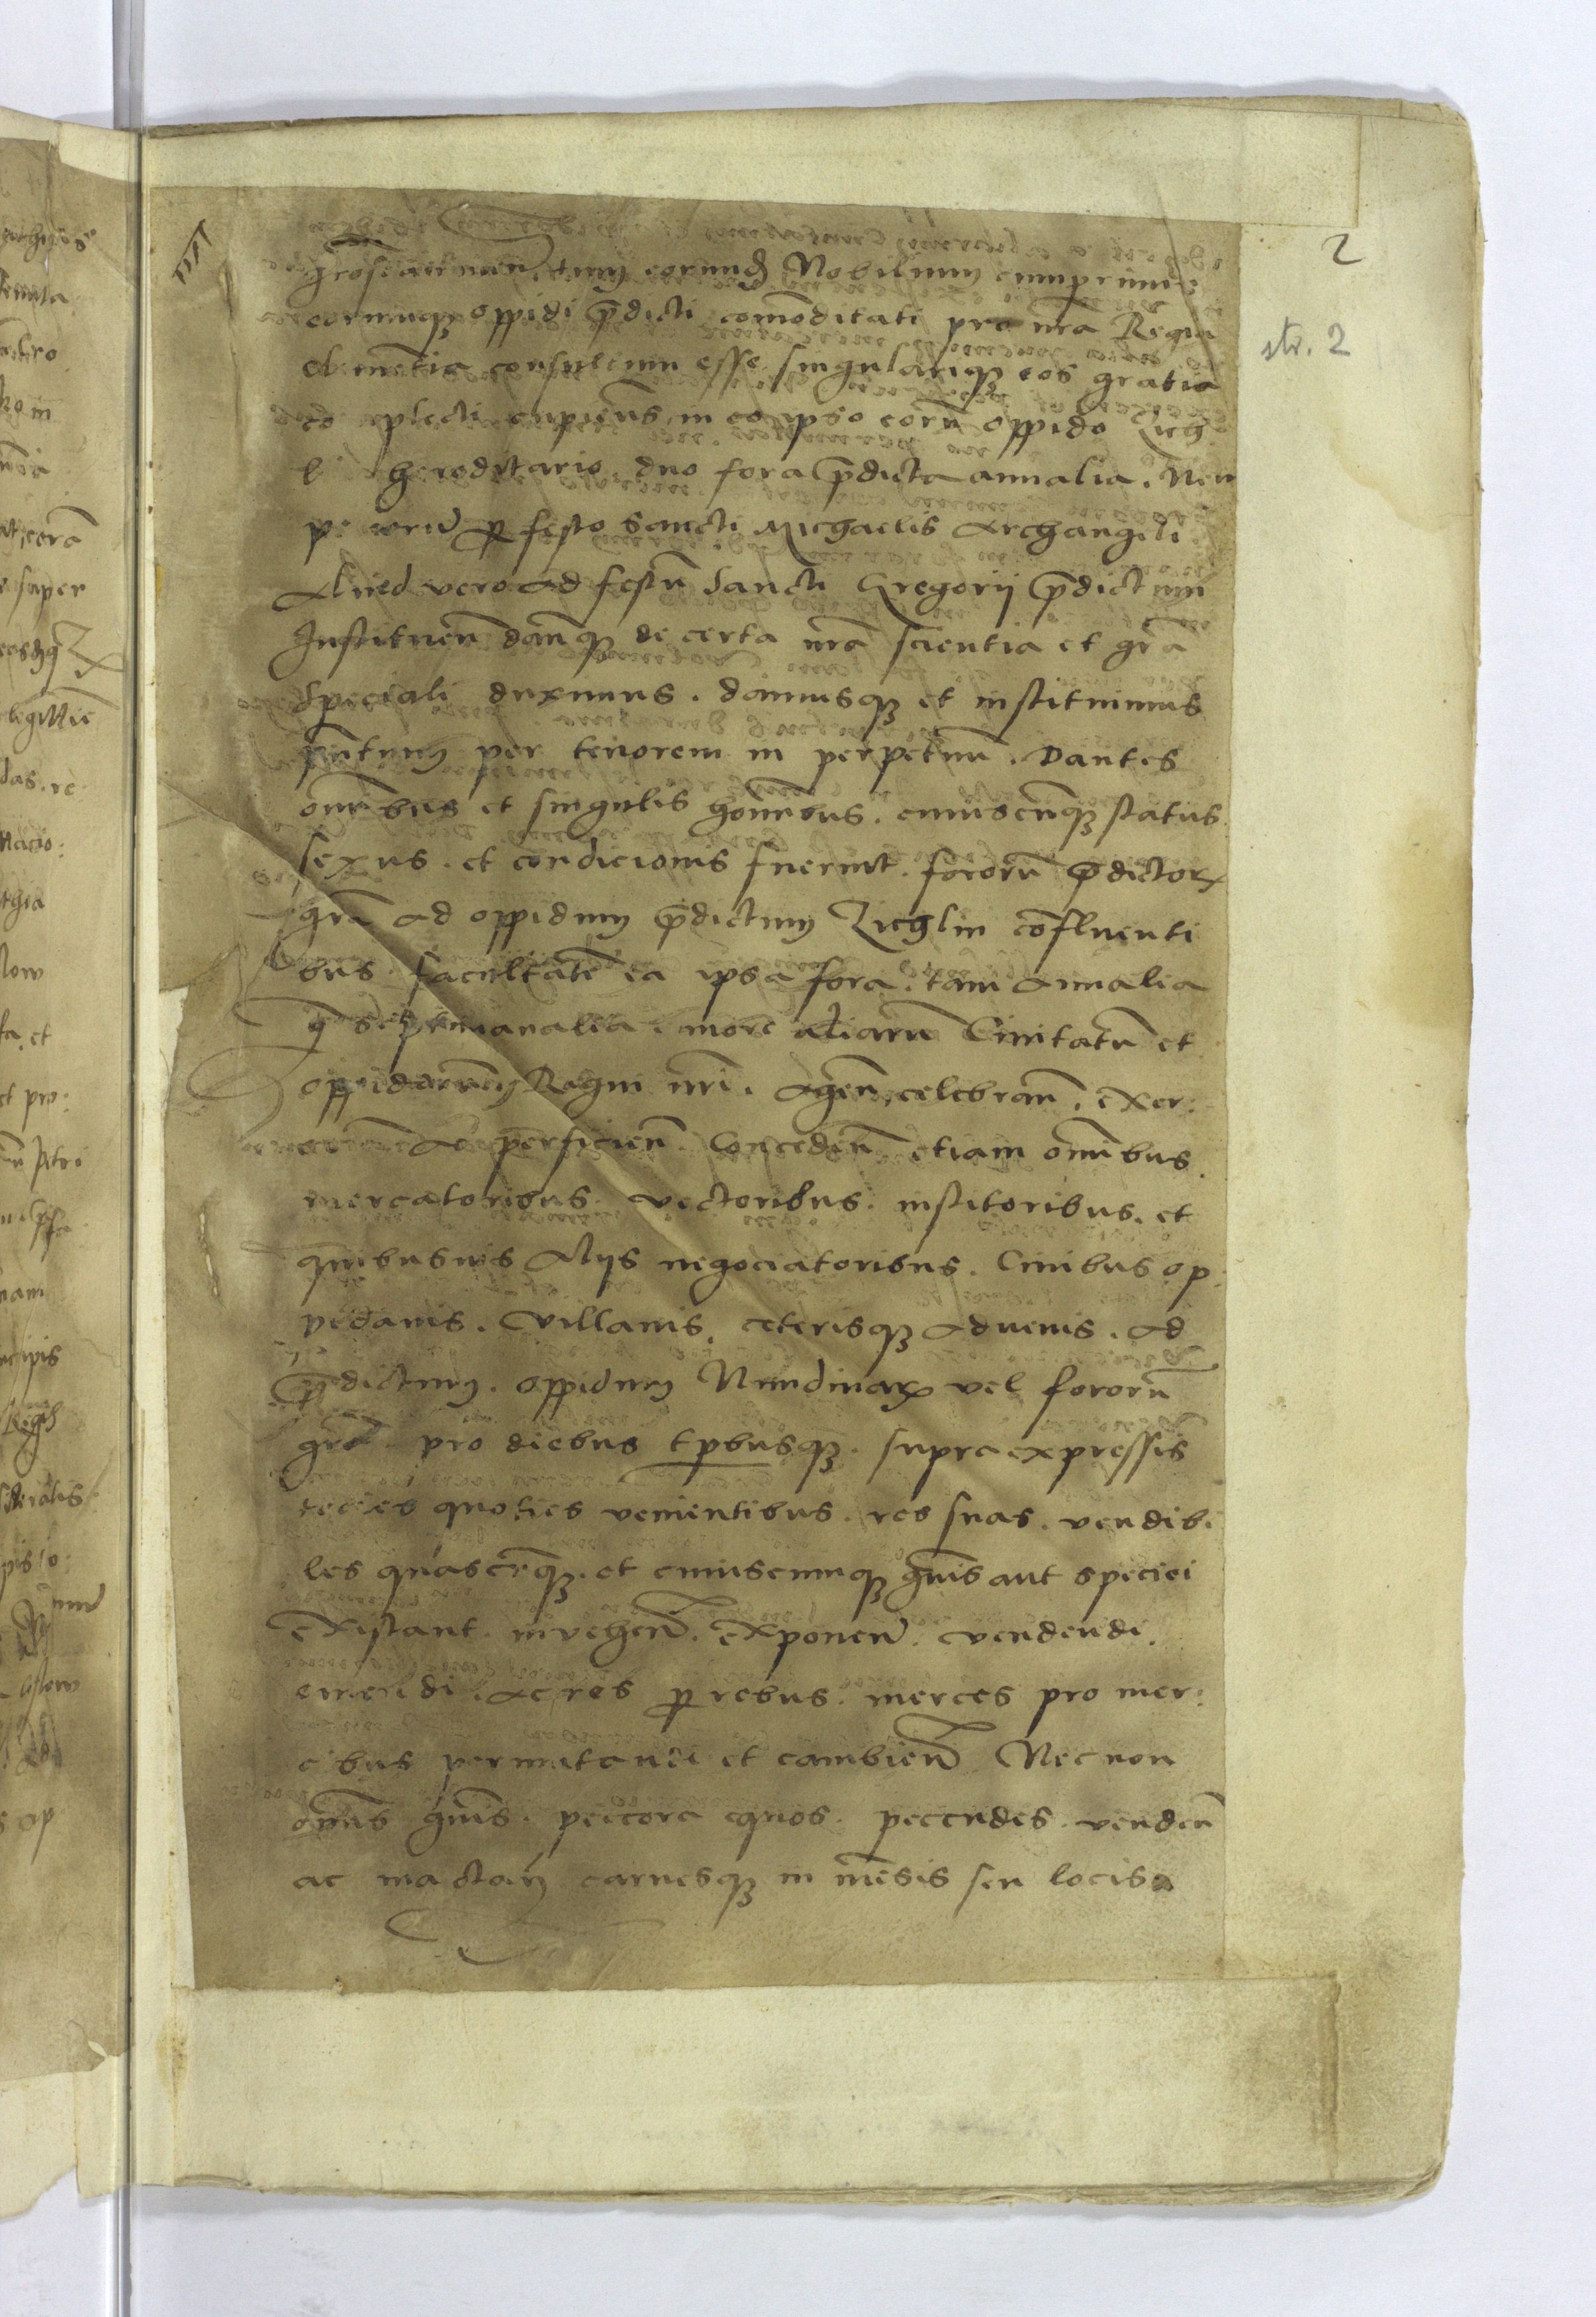 2
str. 2
tum eorund Nobilium cumprimis
eorumq oppidi p̄dicti com̄oditati pro nr̄a Regia
clementia consultum esse singulariq eos gratia
plecti cupien̄s in eo ipso eorū oppido Zich
hereditario duo fora p̄dicta annalia. Nem
pe vnū p festo Sancti Michaelis Archangeli
Aliud vero ad festū Sancti Gregorij p̄dictum
Instituen̄ danq̄ de certa nr̄a scientia et gr̄a
speciali duximus. damusq et instituimus
pn̄tium per tenorem in perpetuū. Dantes
omn̄ibus et singulis homīibus. cuiuscunq status
sexus. et condicionis fuerint. fororū p̄dictorx
gr̄a ad oppidum p̄dictum Zichlin cōfluenti
bus facultatē ea ipsa fora. tam annalia
q̄ septimanalia. more aliarū Ciuitatū et
oppidorum Regni nr̄i. agen̄, celebran̄. exer:
cen̄ ac perficien̄. Conceden̄ etiam omn̄ibus
mercatoribus. vectoribus. institoribus. et
quibusuis alijs negociatoribus. Ciuibus op:
pidanis. villanis. ceterisq aduenis. ad
p̄dictum. oppidum Nundinarx vel fororū
gr̄a pro diebus tp̄busq. supra expressis
tocies quoties venientibus. res suas. vendibi
les quascūq. et cuiuscunq gn̄is aut speciei
existant. inuehen̄. exponen̄. vendendi.
emendi. ac res p rebus. merces pro mer:
cibus permutandi et cambien̄. Nec non
omn̄is gn̄is. peccora equos. peccudes. venden̄
ac mactan̄ carnesq in mēsis seu locis a